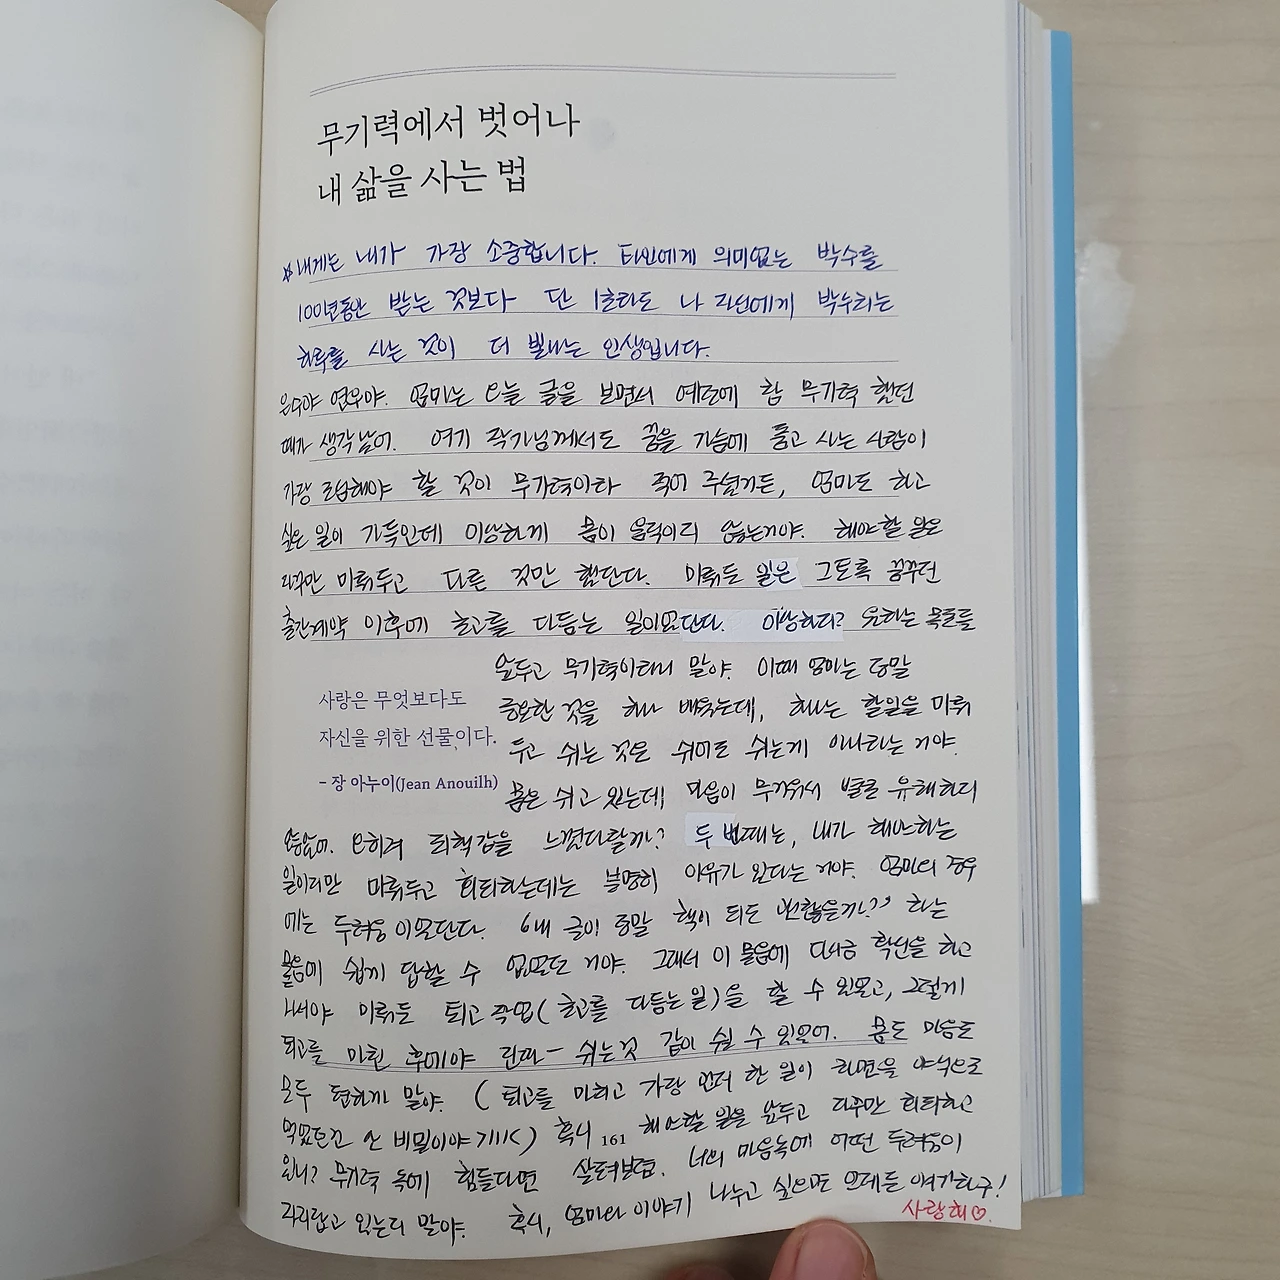 무기력에서 벗어나
내 삶을 사는 법
☆ 내게는 내가 가장 소중합니다. 타인에게 의미없는 박수를
100년동안 받는 것보다 단 1초라도 나 자신에게 박수치는
하루를 사는 것이 더 빛나는 인생입니다.
은수야 연우야. 엄마는 오늘 글을 보면서 예전에 참 무기력 했던
때가 생각났어. 여기 작가님께서도 꿈을 가슴에 품고 사는 사람이
가장 조심해야 할 것이 무기력이라 적어 주셨거든, 엄마도 하고
싶은 일이 가득인데 이상하게 몸이 움직이지 않는거야. 해야할 일은
자꾸만 미뤄두고 다른 것만 했단다. 미뤄둔 일은 그토록 꿈꾸던
출간계약 이후에 초고를 다듬는 일이었단다. 이상하지? 원하는 목표를
앞두고 무기력이라니 말야. 이때 엄마는 정말
중요한 것을 하나 배웠는데, 하나는 할일을 미뤄
두고 쉬는 것은 쉬어도 쉬는게 아니라는 거야.
사랑은 무엇보다도
자신을 위한 선물이다.
- 장 아누이(Jean Anouilh)
몸은 쉬고 있는데 마음이 무거워서 별로 유쾌하지
않았어. 오히려 죄책감을 느꼈다랄까? 두 번째는, 내가 해야하는
일이지만 미뤄두고 회피하는데는 분명히 이유가 있다는 거야. 엄마의 경우
에는 두려움이었단다. "내 글이 정말 책이 되도 괜찮을까?" 하는
물음에 쉽게 답할 수 없었던 거야. 그래서 이 물음에 다시금 확신을 하고
나서야 미뤄둔 퇴고 작업(초고를 다듬는 일)을 할 수 있었고, 그렇게
퇴고를 마친 후에야 진짜 쉬는 것 같이 쉴 수 있었어. 몸도 마음도
모두 편하게 말야. (퇴고를 마치고 가장 먼저 한 일이 라면을 야식으로
먹었던건 안 비밀이야 기!!!<) 혹시 해야할 일을 앞두고 자꾸만 회피하고
있니? 무기력 속에 힘들다면 살펴보렴. 너의 마음속에 어떤 두려움이
자리잡고 있는지 말야. 혹시, 엄마와 이야기 나누고 싶으면 언제든 얘기하구!
사랑해♡.
161